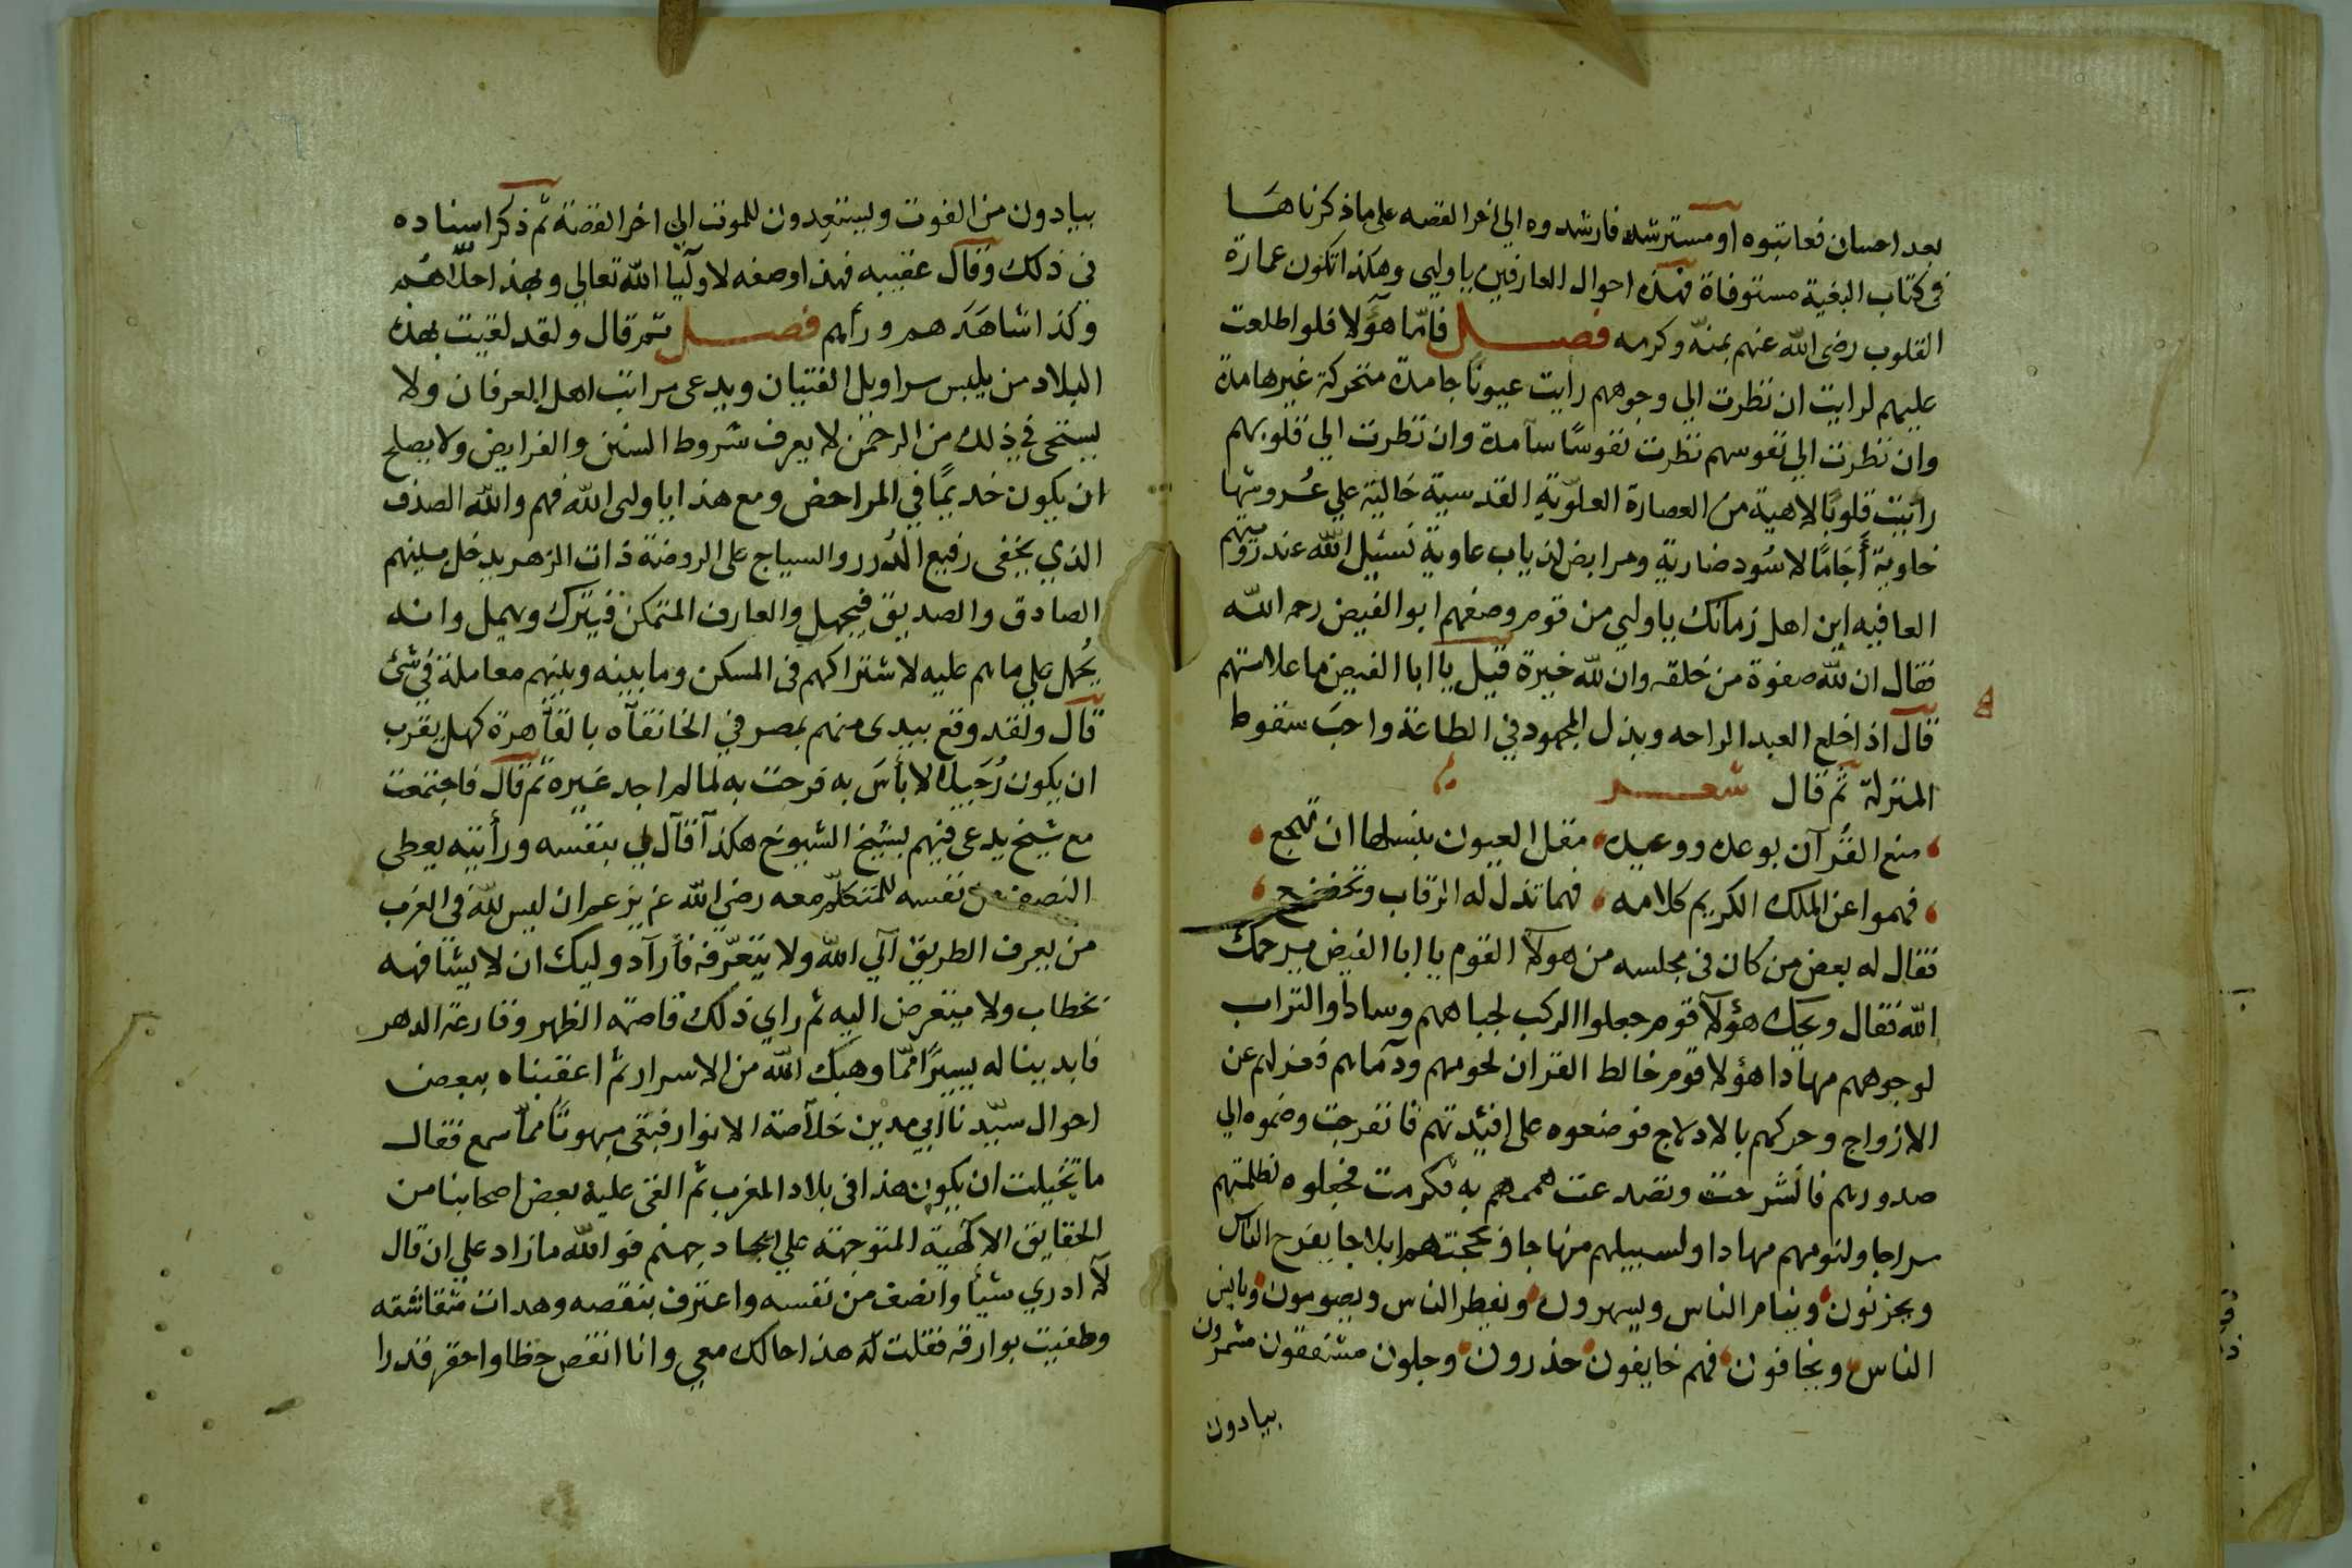 بعد احسان فعاتبوه او مسترشد فارشدوه الى اخر القصه على ما ذكرناها
فى كتاب البغية مستوفاة فهذه احوال العارفين يا وليى وهكذا تكون عمارة
القلوب رضى الله عنهم بمنّه وكرمه فصل فامّا هؤلا فلو اطلعت
عليهم لرايت ان نظرت الي وجوههم رايت عيونًا جامدة متحركة غير هامدة
وان نظرت الي نفوسهم نظرت نفوسًا سآمدة وان نظرت الي قلوبهم
رايت قلوبًا لاهية من العصارة العلوّية القدسية خالية علي عُروشها
خاوية أجَامًا لاسُود ضارية ومرابض لذياب عاوية نسئل الله عند رؤيتهم
العافيه اين اهل زمانك يا وليي من قوم وصفهم ابو الفيض رحمه الله
فقال ان لله صفوة من خلقه وان لله خيرة قيل يا ابا الفيض ما علامتهم
قال اذا خلع العبد الراحه وبذل المجهود في الطاعة واحب سقوط
المنزلة ثم قال شعر
منع القُرآن بوعده ووعيده مقل العيون بليلها ان تهجع
فهموا عن الملك الكريم كلامه فهما تذل له الرقاب وتخضع
فقال له بعض من كان فى مجلسه من هولآ القوم يا ابا الفيض يرحمك
الله فقال ويحك هؤلآ قوم جعلوا الركب لجباههم وسادا والتراب
لوجوههم مهادا هؤلا قوم خالط القران لحومهم ودمآهم فعزلهم عن
الازواج وحركهم بالادلاج فوضعوه على افئدتهم فانفرجت وضموه الي
صدورهم فانشرحت وتصدعت هممهم به فكدحت فجعلوه لظلمتهم
سراجا ولنومهم مهادا ولسبيلهم منهاجا ولحجتهم ابلاجا يفرح الناس
ويحزنون وينام الناس ويسهرون ويفطر الناس ويصومون ويامن
الناس ويخافون فهم خايفون حذرون وجلون مشفقون مشمرون
يبادون
يبادون من الفوت ويستعدون للموت الي اخر القصة ثم ذكر اسناده
فى ذلك وقال عقيبه فهذا وصفه لاوليآ الله تعالي وبهذا حلاّهُم
وكذا شاهَدَهم ورأهم فصل ثم قال ولقد لقيت بهذه
البلاد من يلبس سراويل الفتيان ويدعى مراتب اهل العرفان ولا
يستحى في ذلك من الرحمن لا يعرف شروط السنن والفرايض ولا يصلح
ان يكون خديمًا في المراحض ومع هذا يا وليى الله فهم والله الصدف
الذي يخفى رفيع الدُرر والسياج على الروضة ذات الزهر يدخل بينهم
الصادق والصديق فيجهل والعارف المتمكن فيترك ويهمل وانه
يُحمل علي ما هم عليه لاشتراكهم فى المسكن وما بينه وبينهم معاملة في شئ
قال ولقد وقع بيدى منهم بمصر في الخانقآه بالقآهرة كهل يقرب
ان يكون رُجَيلا لا بأسَ به فرحت به لما لم اجد غيره ثم قال فاجتمعت
مع شيخ يدعى فيهم بشيخ الشيوخ هكذا قال لي بنفسه ورأيته يعطى
النصف من نفسه للمتكلّم معه رضي الله عزيز عمران ليس لله فى الغرب
من يعرف الطريق الي الله ولا يتعرّفه فأرآد وليك ان لا يشافهه
بخطاب ولا يتعرض اليه ثم راي ذلك قاصمة الظهر وقارعة الدهر
فابدينا له يسيرًا ممّا وهبك الله من الاسرار ثم اعقبناه ببعض
احوال سيّدنا ابي مدين خلآصة الانوار فبقى مبهوتًا مماّ سمع فقال
ما تخيلت ان يكون هذا فى بلاد المغرب ثم القى عليه بعض اصحابنا من
الحقايق الالٓهية المتوجهة علي ايجاد جهنم فوالله مازاد علي ان قال
لآ ادري شيأ وانصف من نفسه واعترف بنقصه وهدات شقاشقه
وطفيت بوارقه فقلت له هذا حالك معي وانا انقص حظا واحقر قدرا